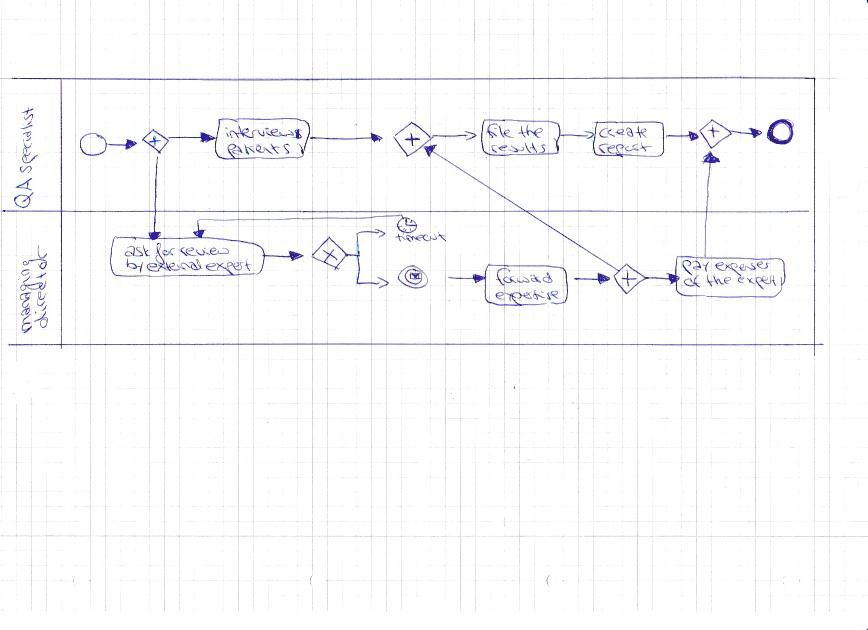 QA specialist
interviews
patients
file the
results
create
report
managing
director
ask for review
by external expert
timeout
forward
expertise
pay expenses
of the expert